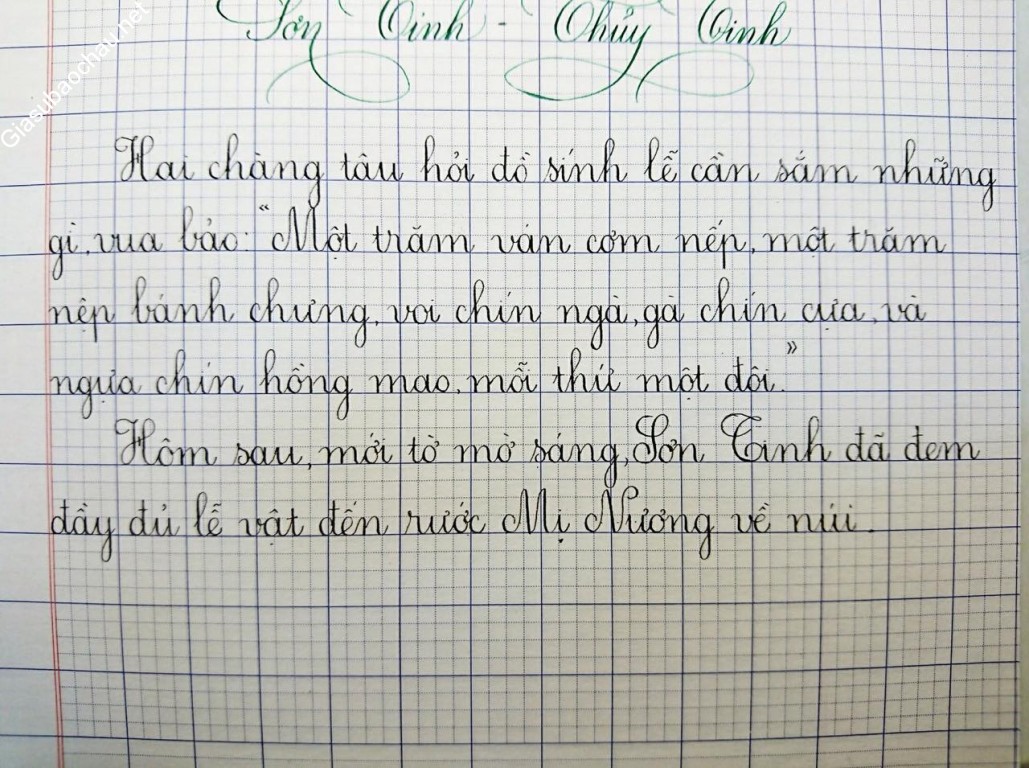 Sơn Tinh - Thủy Tinh
Hai chàng tâu hỏi đồ sính lễ cần sắm những
gì, vua bảo: "Một trăm ván cơm nếp, một trăm
nệp bánh chưng, voi chín ngà, gà chín cựa, và
ngựa chín hồng mao, mỗi thứ một đôi."
Hôm sau, mới tờ mờ sáng, Sơn Tinh đã đem
đầy đủ lễ vật đến rước Mị Nương về núi.
Giasubaochau.net